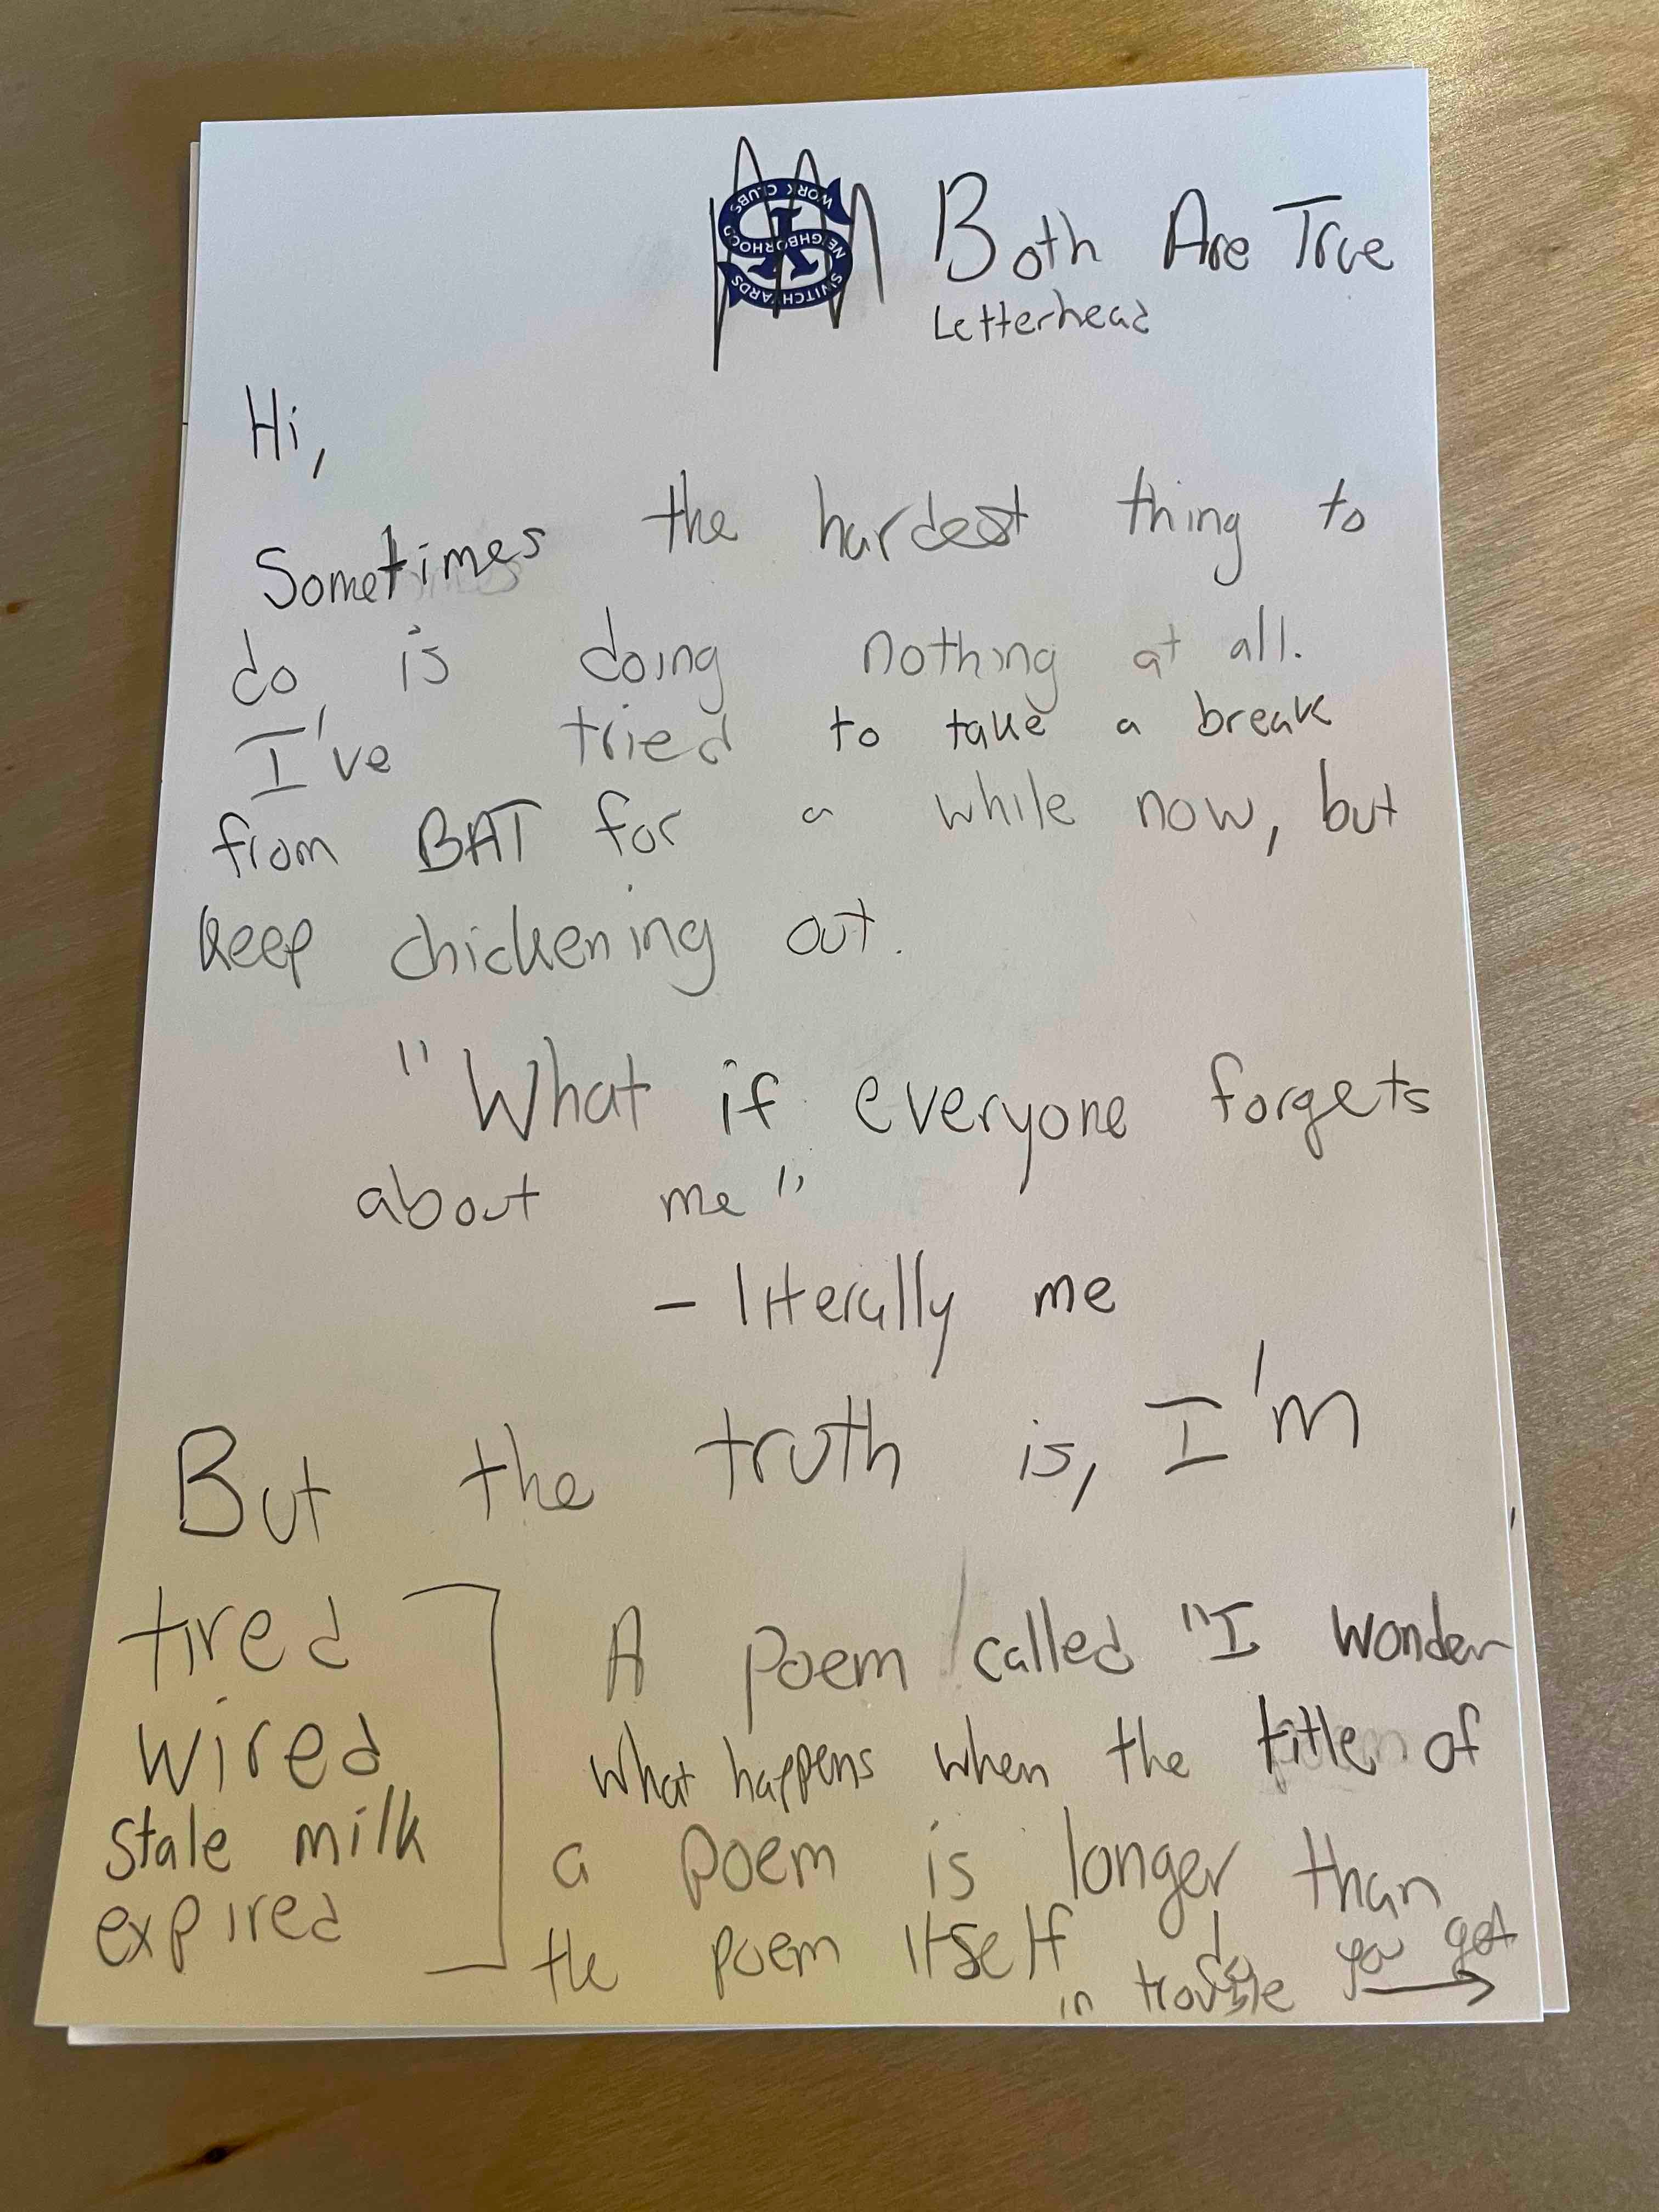 WORK CLUBS
NEIGHBORHOOD
SWITCHYARDS
Both Are True
Letterhead
Hi,
Sometimes the hardest thing to
do is doing nothing at all.
I've tried to take a break
from BAT for a while now, but
keep chickening out.
"What if everyone forgets
about me"
- literally me
But the truth is, I'm
tired
wired
stale milk
expired
A poem called "I wonder
what happens when the title of
a poem is longer than
the poem itself do you get
in trouble